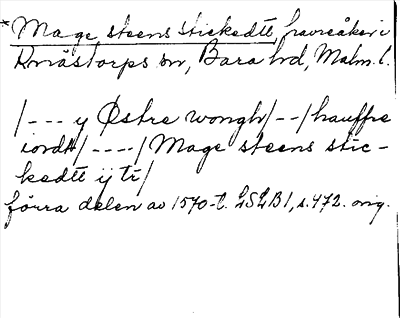 *Mage steens stickedtt, havreåker i
Knästorps sn, Bara hd, Malm. l.
/--- y Østre wongh/--/hauffre
iordtt/----/Mage steens stic-
kedtt ij tr/
förra delen av 1570-t. LSLB1, s. 472. orig.